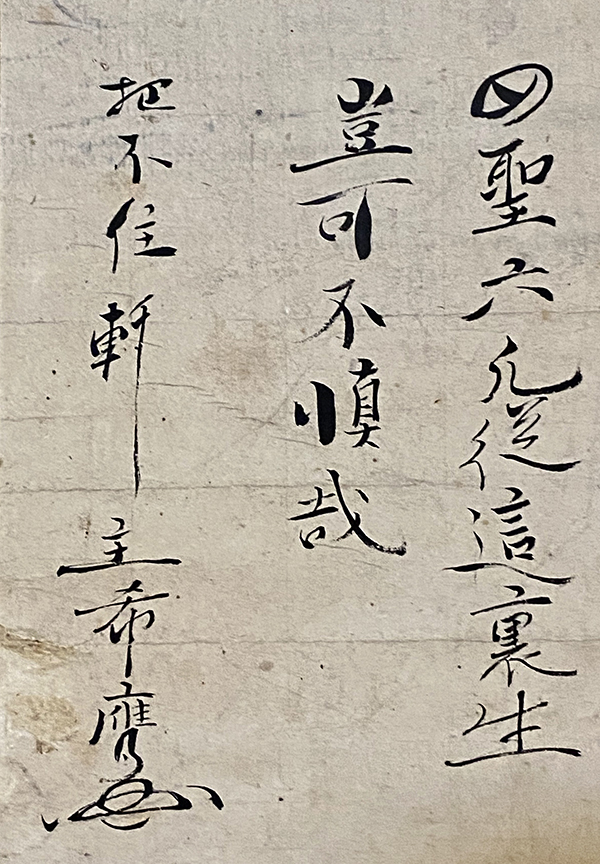 四聖六凡從這裏生
豈可不慎哉
把不住軒主希膺